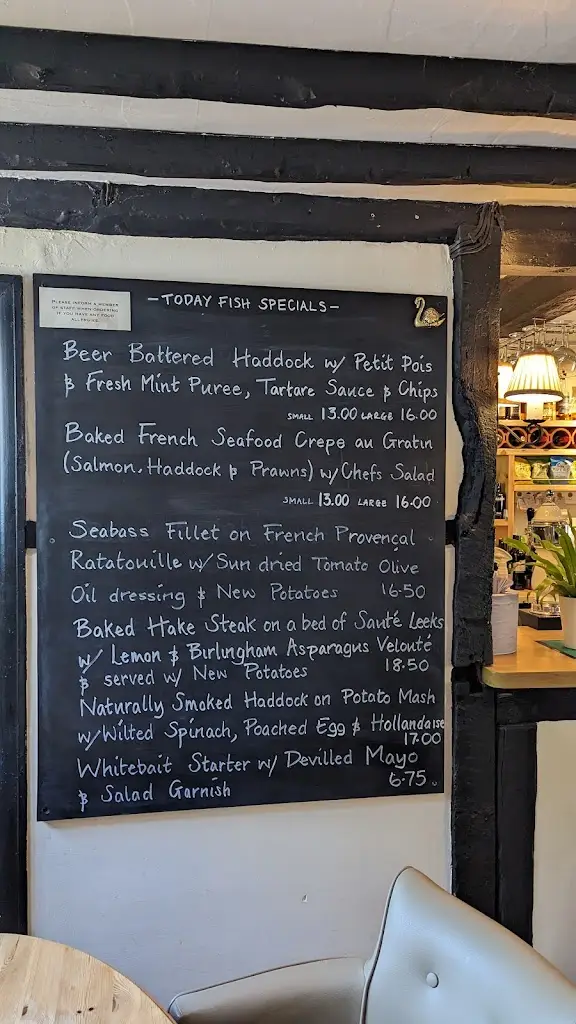 PLEASE INFORM A MEMBER
OF STAFF WHEN ORDERING
IF YOU HAVE ANY FOOD
ALLERGIES
-TODAY FISH SPECIALS-
Beer Battered Haddock w/ Petit Pois
& Fresh Mint Puree, Tartare Sauce & Chips
SMALL 13.00 LARGE 16.00
Baked French Seafood Crepe au Gratin
(Salmon, Haddock & Prawns) w/ Chefs Salad
SMALL 13.00 LARGE 16.00
Seabass Fillet on French Provençal
Ratatouille w/ Sun dried Tomato Olive
Oil dressing & New Potatoes 16.50
Baked Hake Steak on a bed of Sauté Leeks
w/ Lemon & Birlingham Asparagus Velouté
& served w/ New Potatoes 18.50
Naturally Smoked Haddock on Potato Mash
w/ Wilted Spinach, Poached Egg & Hollandaise
17.00
Whitebait Starter w/ Devilled Mayo
& Salad Garnish 6.75